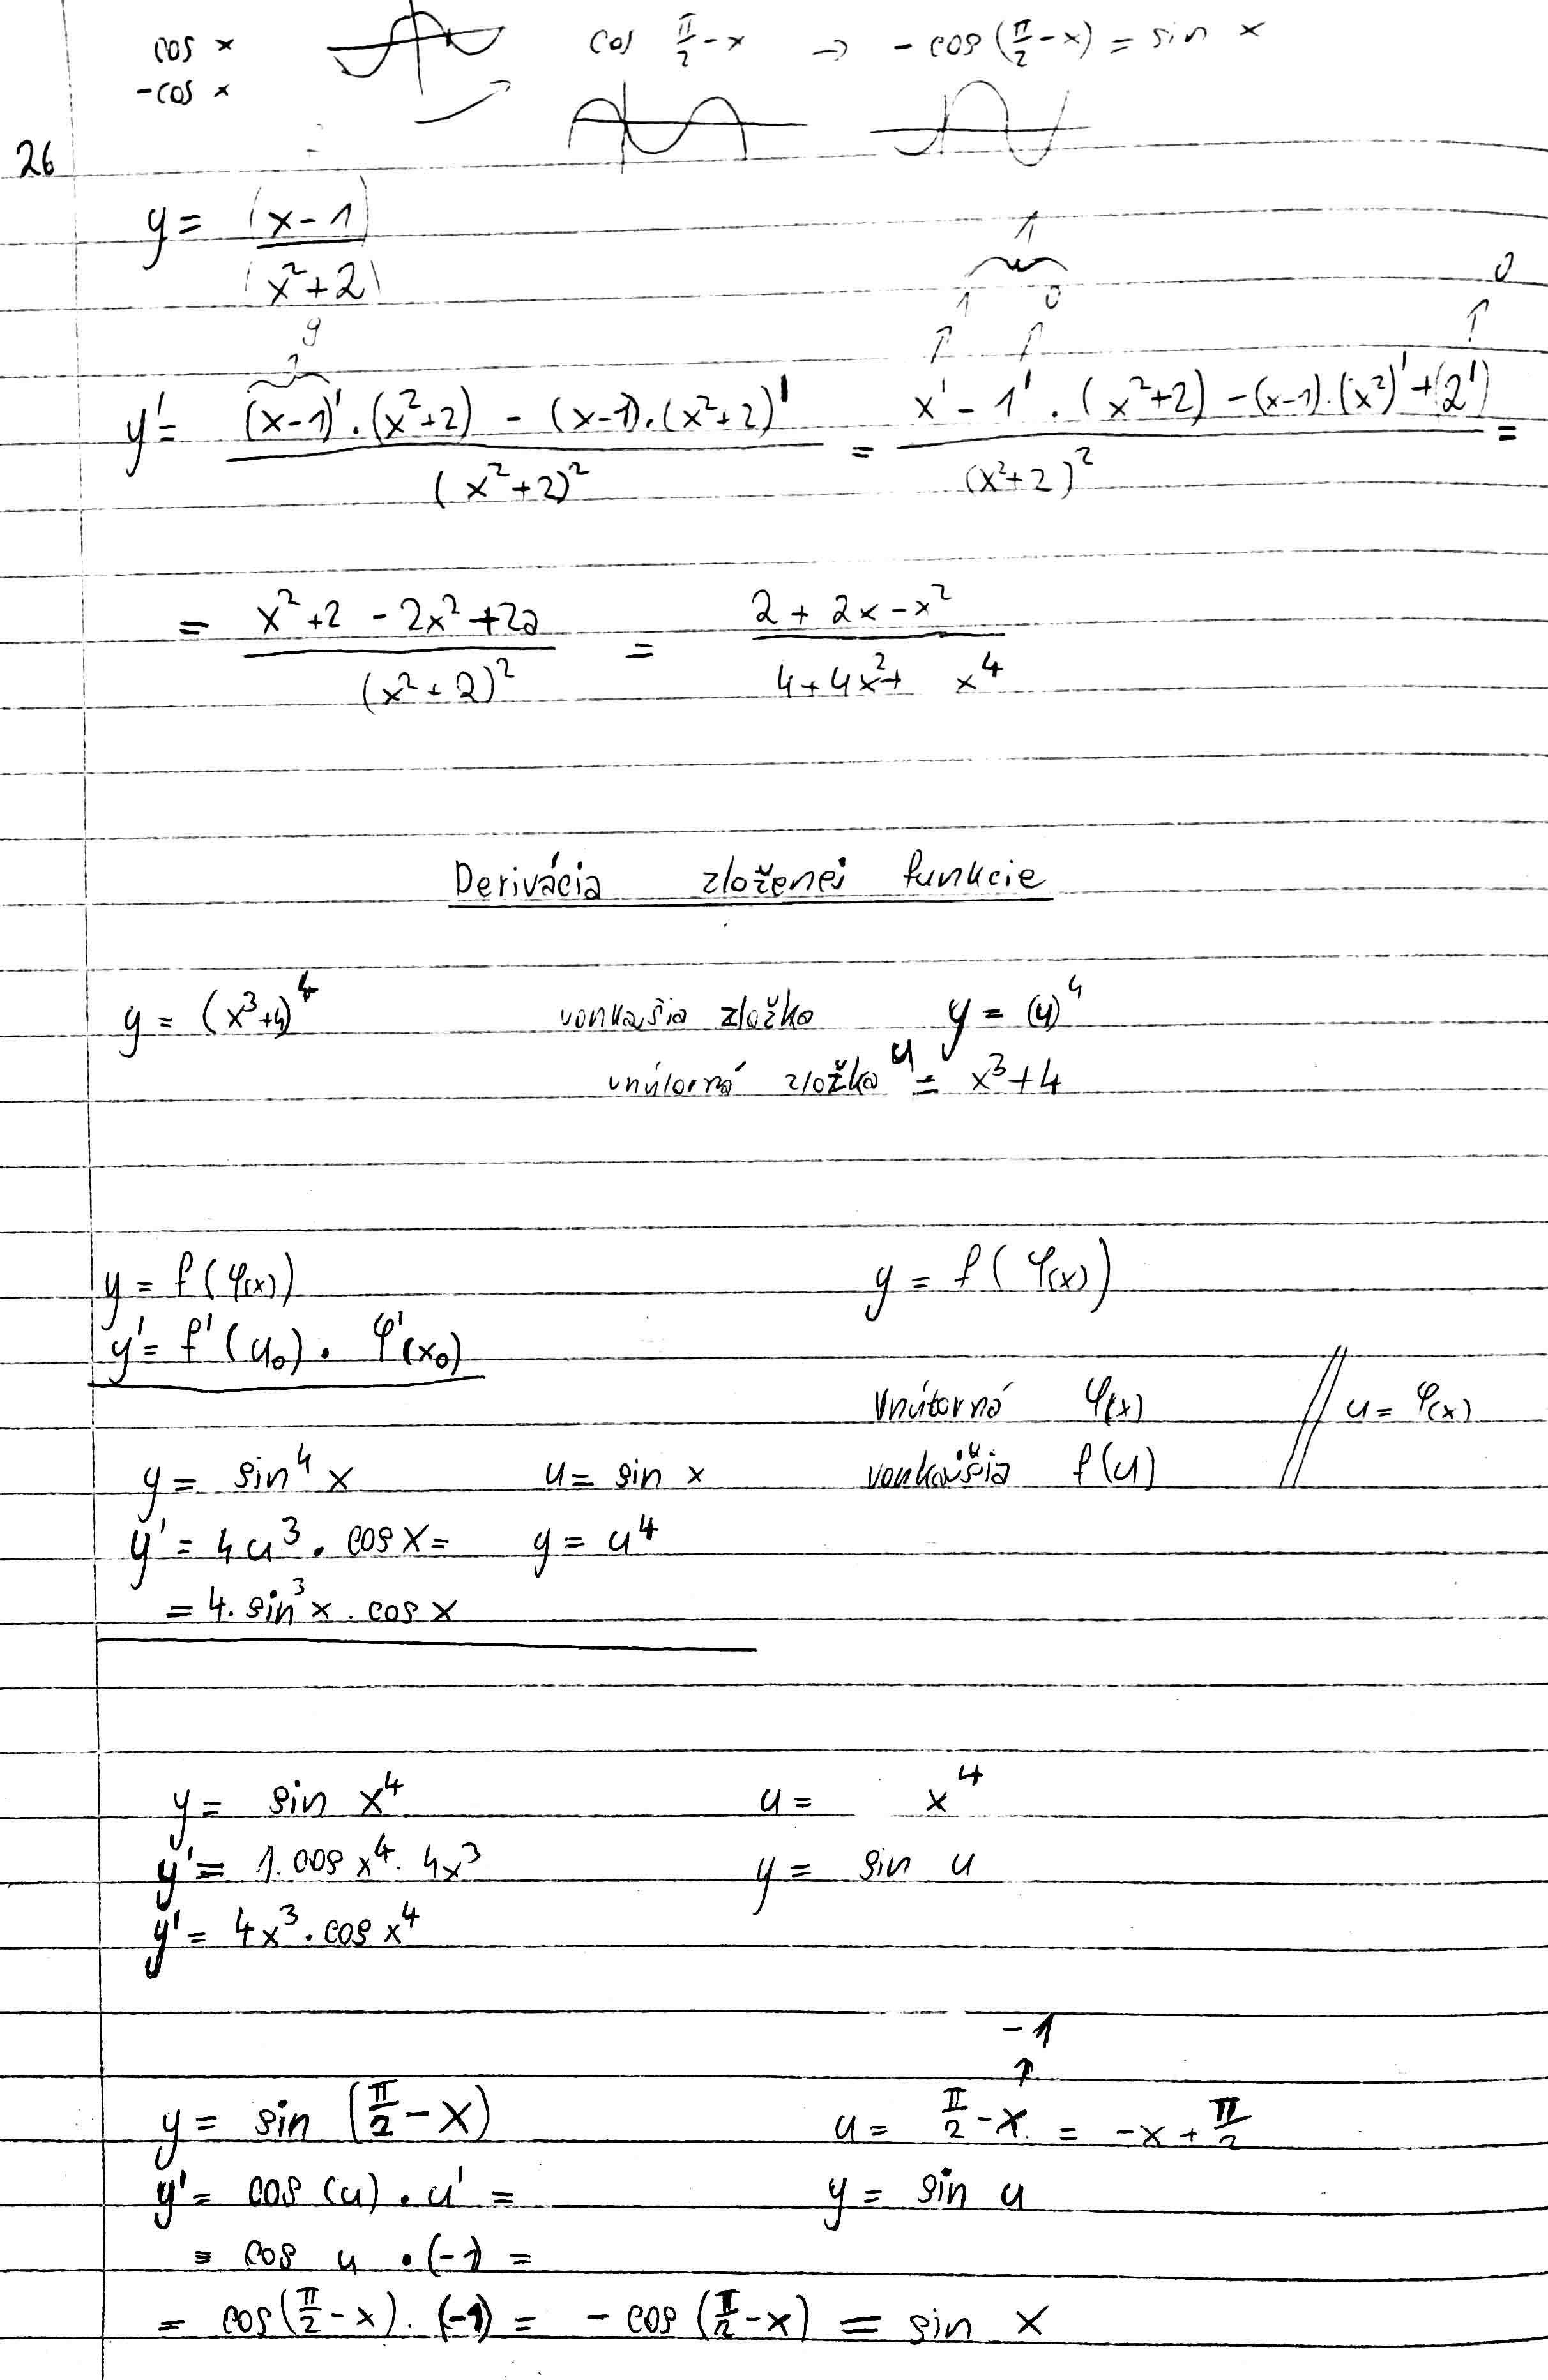 cos x cos π/2 - x → - cos (π/2 - x) = sin x
-cos x
26
y = (x - 1)/(x² + 2)
1
1 0 0
y' = ((x-1)' . (x²+2) - (x-1) . (x²+2)')/(x²+2)² = (x' - 1' . (x²+2) - (x-1) . (x²)' + (2'))/(x²+2)² =
= (x² + 2 - 2x² + 22)/(x² + 2)² = (2 + 2x - x²)/(4 + 4x² + x⁴)
Derivácia zloženei funkcie
y = (x³+4)⁴ vonkašia zložka y = (u)⁴
vnútorná zložka u = x³ + 4
y = f(φ(x)) y = f(φ(x))
y' = f'(u₀) . φ'(x₀)
Vnútorná φ(x) // u = φ(x)
y = sin⁴ x u = sin x vonkajšia f(u)
y' = 4u³ . cos x = y = u⁴
= 4 . sin³ x . cos x
y = sin x⁴ u = x⁴
y' = 1. cos x⁴ . 4x³ y = sin u
y' = 4x³ . cos x⁴
-1
↑
y = sin (π/2 - x) u = π/2 - x = -x + π/2
y' = cos (u) . u' = y = sin u
= cos u . (-1) =
= cos(π/2 - x) . (-1) = - cos (π/2 - x) = sin x